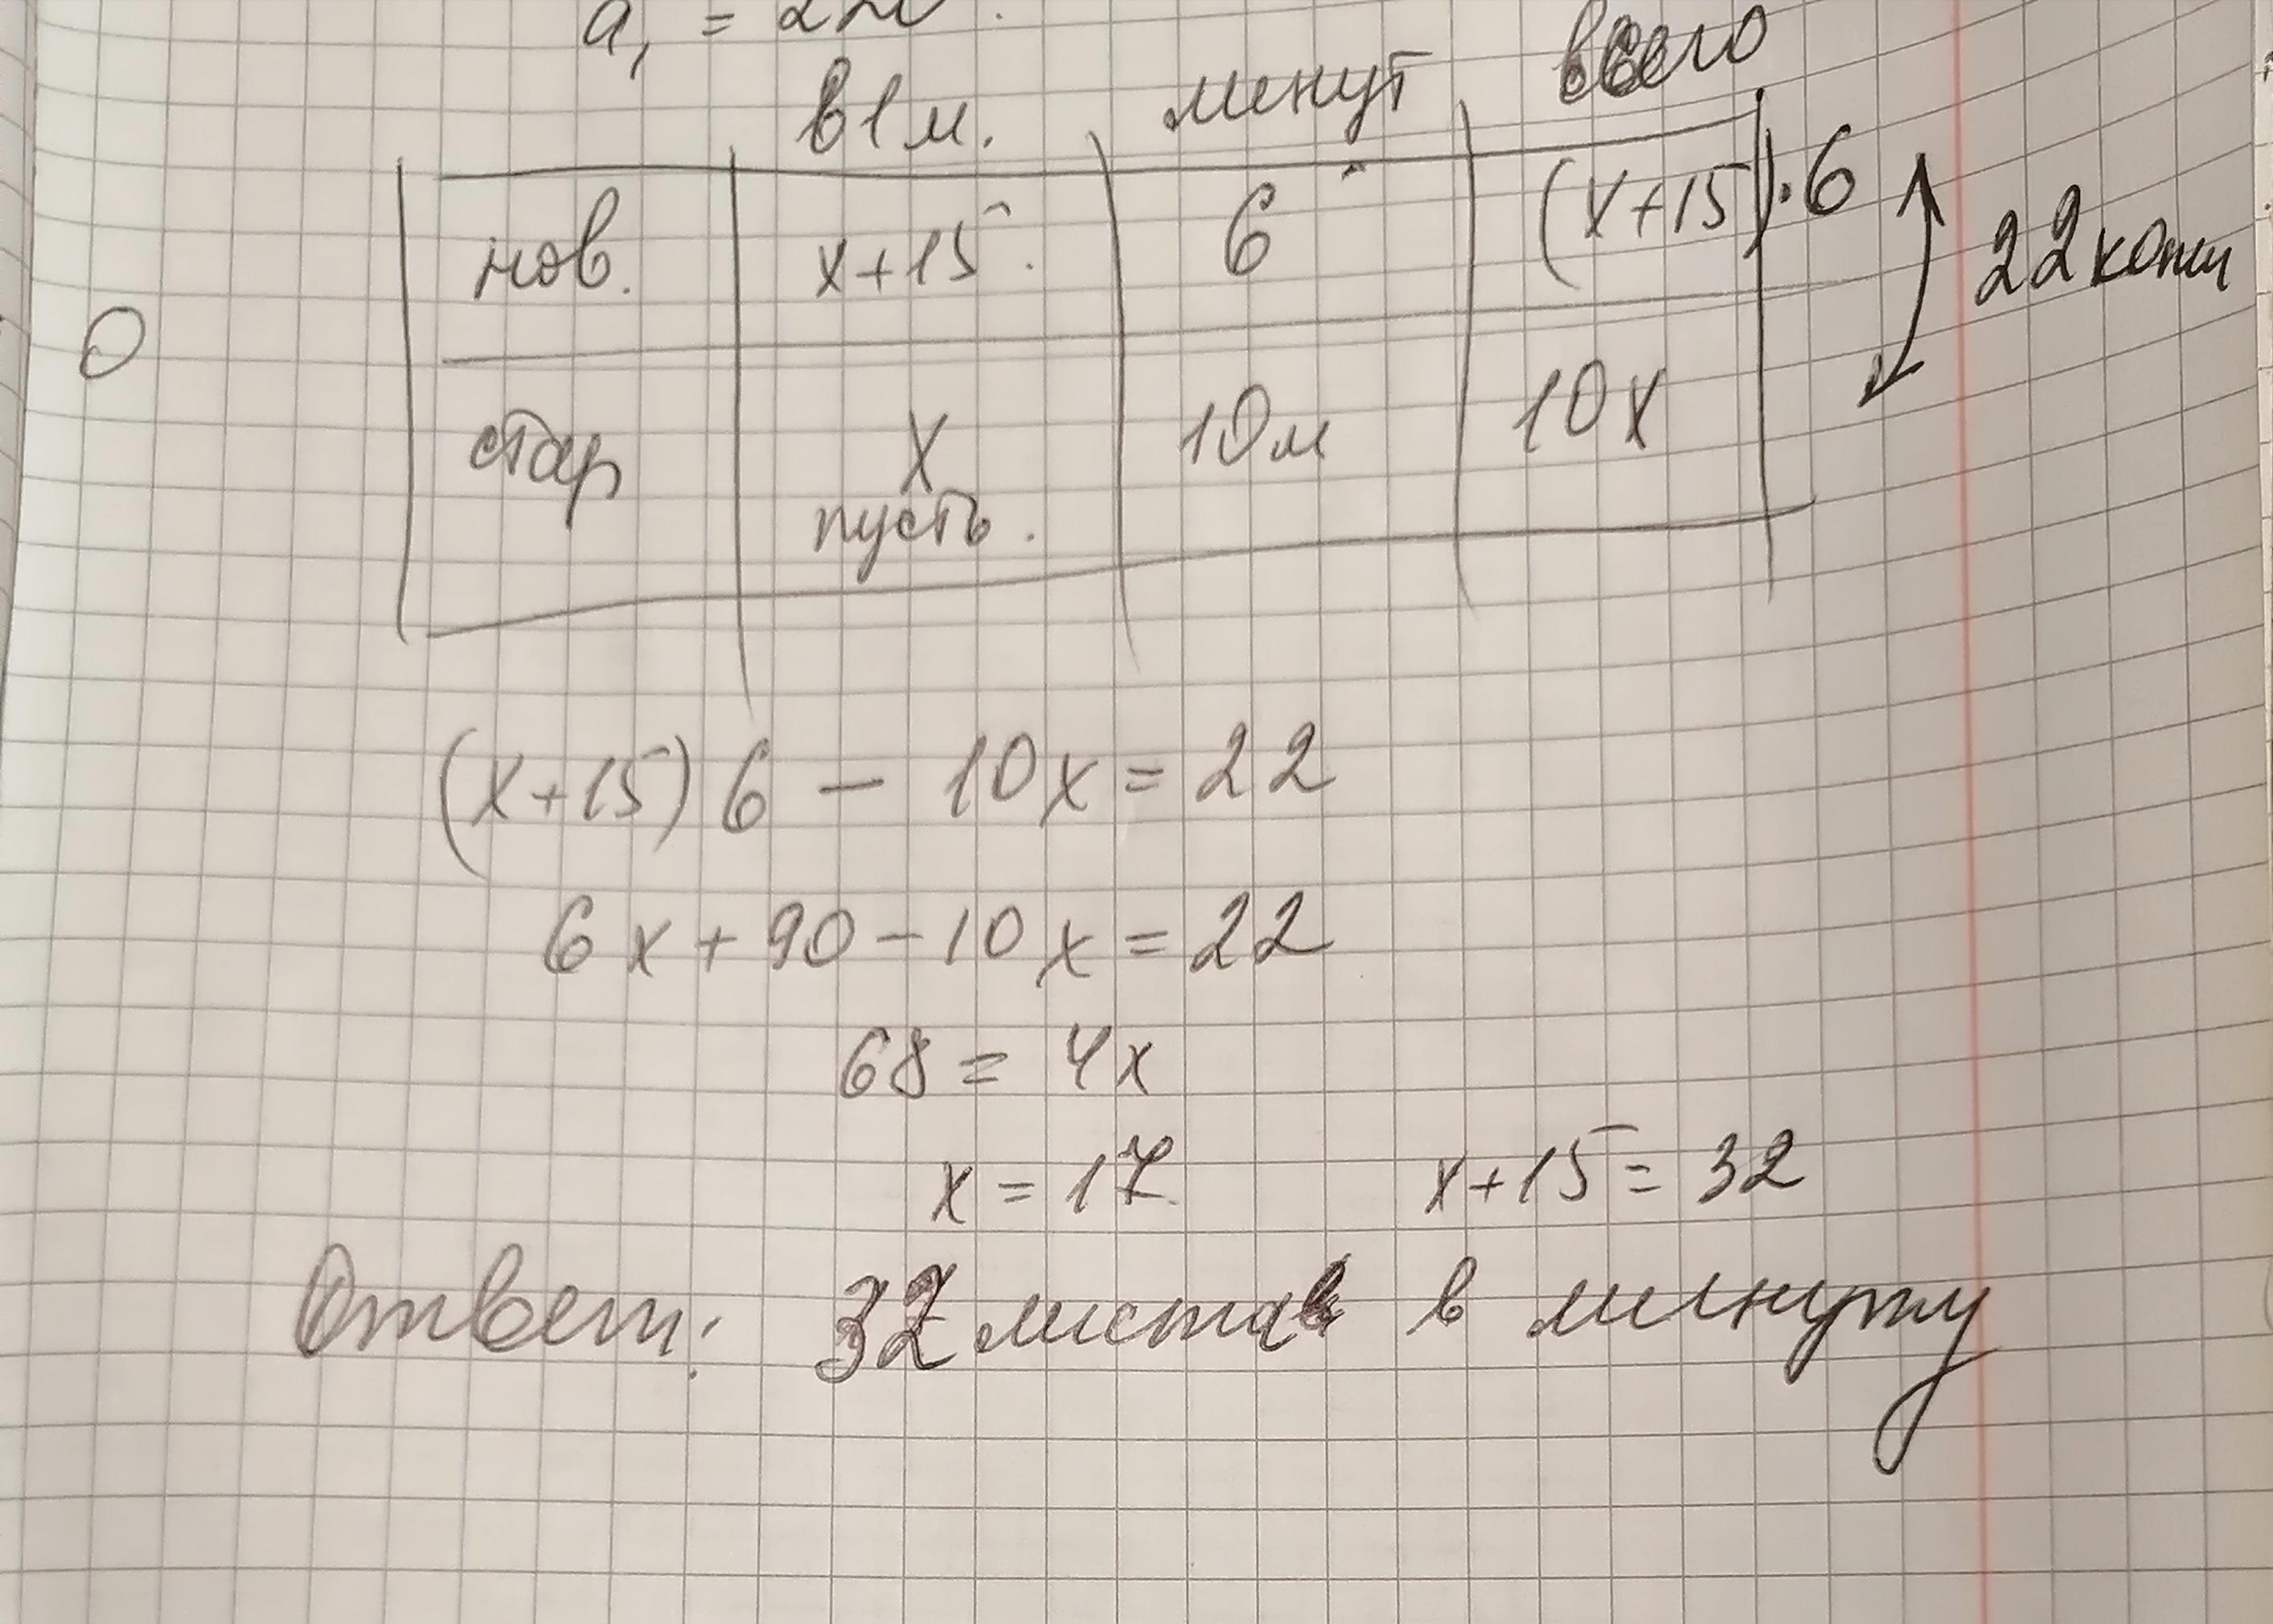 a₁ = 22
в 1 м. минут всего
нов. x+15 6 (x+15)·6 22 копии
стар x 10м 10x
пусть.
(x+15)6 - 10x = 22
6x + 90 - 10x = 22
68 = 4x
x = 17 x+15 = 32
Ответ: 32 листа в минуту